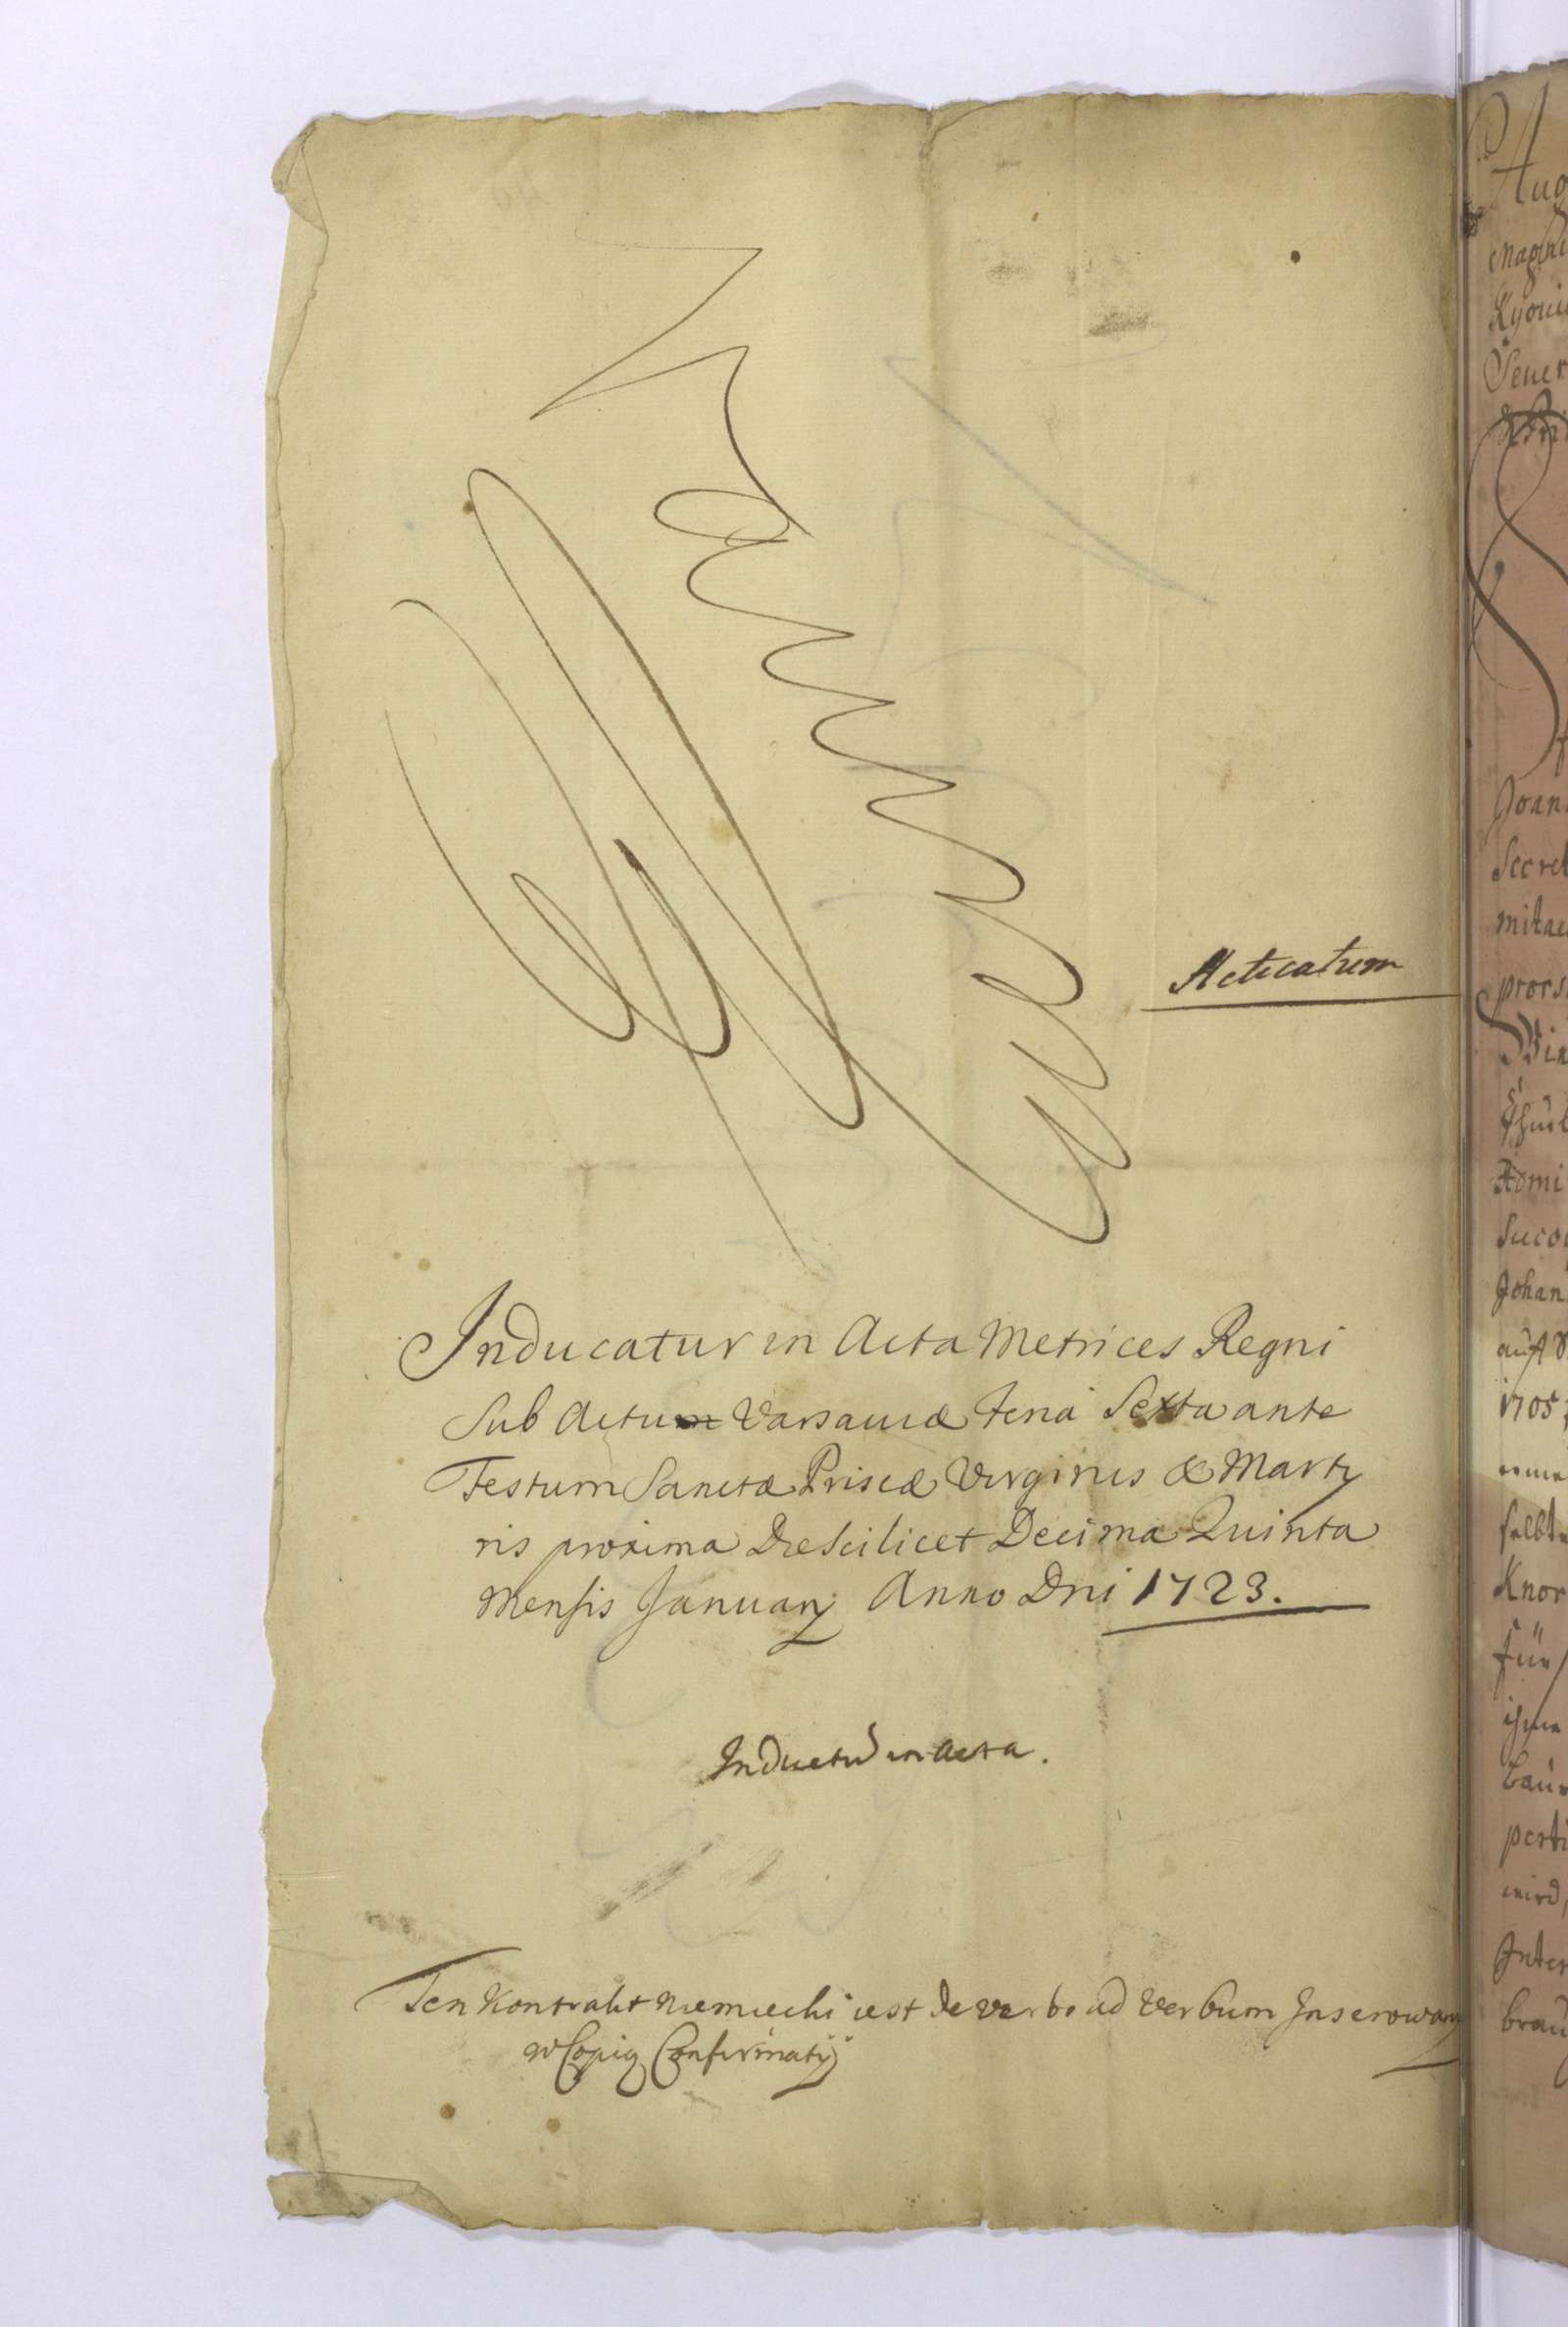 Acticatum
Inducatur in Acta Metrices Regni
Sub Actu Varsaviæ Feria Sexta ante
Festum Sanctæ Priscæ Virginis & Marty
ris proxima Die Scilicet Decima Quinta
Mensis Januarij Anno Dni 1723.
Inductu in Acta.
Ten Kontrakt Niemiecki iest de verbo ad verbum Inserowany
w Copią Confirmatij
Aug
Magn
Kyoui
Seuer
Joan
Secret
mitae
prors
Johan
1705
selbt
Knor
für
ihme
perti
wird,
Inter
brau